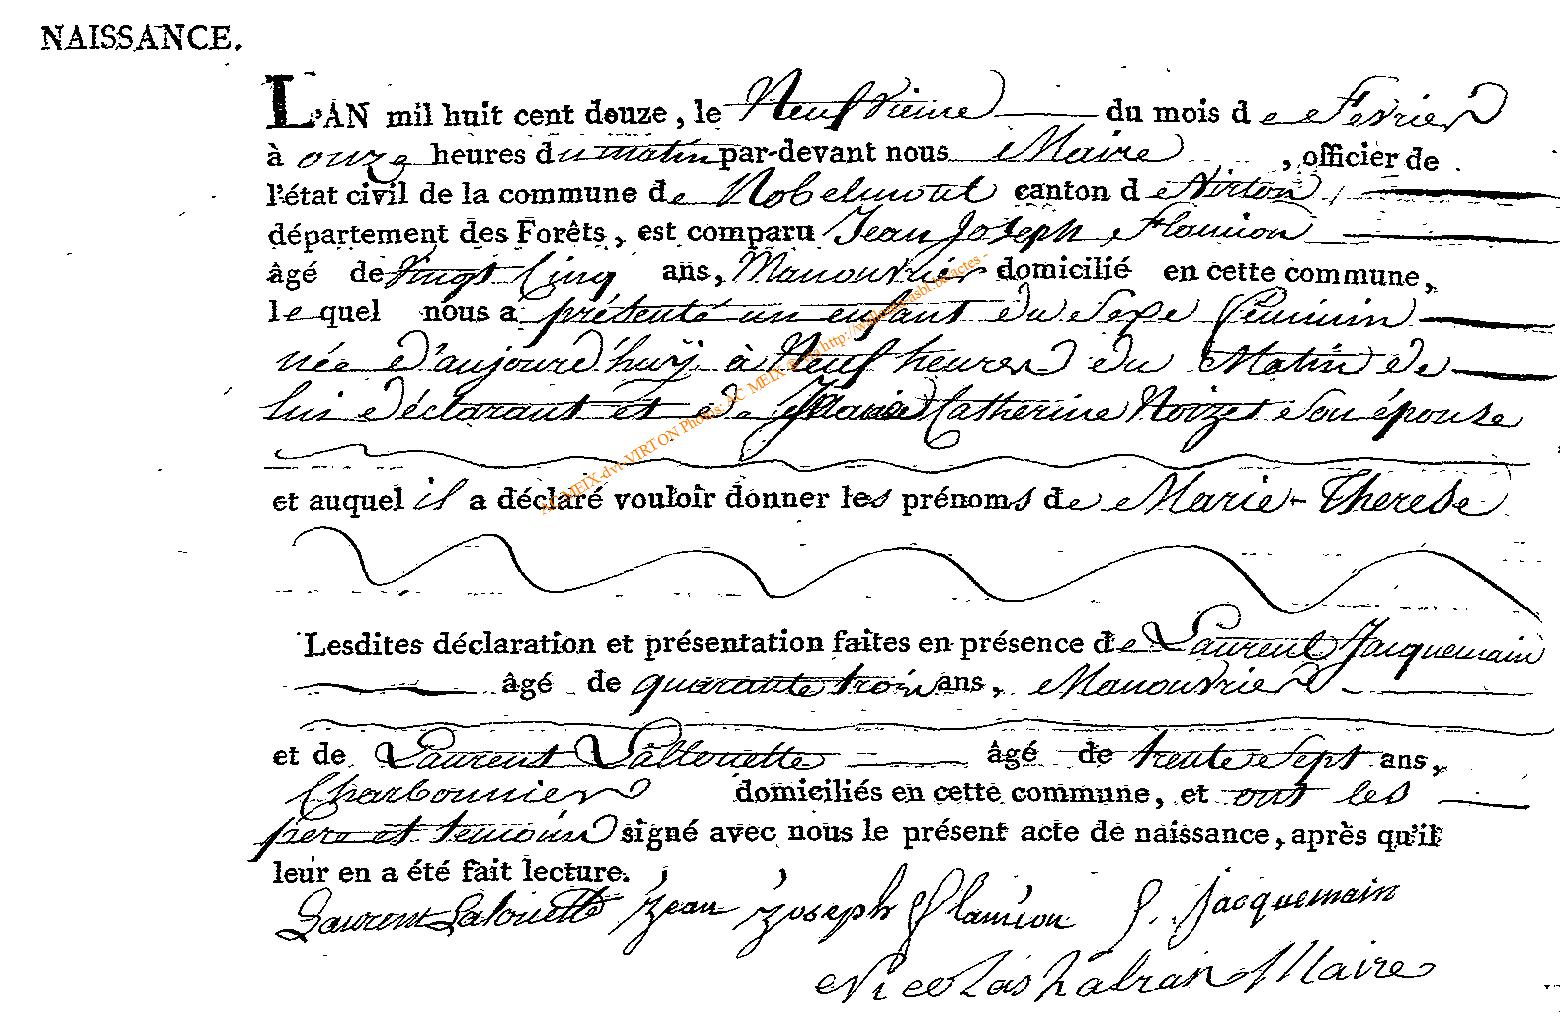 NAISSANCE.
L'AN mil huit cent douze, le Neufvieme du mois de Fevrier
à onze heures du matin par-devant nous Maire, officier de
l'état civil de la commune de Robelmont canton de Virton
département des Forêts, est comparu Jean Joseph Flamion
âgé de Vingt Cinq ans, Manouvrier domicilié en cette commune,
le quel nous a présenté un enfant du Sexe féminin
née d'aujourd'huÿ à Neuf heures du Matin de
lui déclarant et de Marie Catherine Noizet son épouse
et auquel il a déclaré vouloir donner les prénoms de Marie-Therese
Lesdites déclaration et présentation faites en présence de Laurent Jacquemain
âgé de quarante trois ans, Manouvrier
et de Laurent Lallouette âgé de trente Sept ans,
Charbonnier domiciliés en cette commune, et ont les
pere et temoins signé avec nous le présent acte de naissance, après qu'il
leur en a été fait lecture.
Laurent Lalouette Jean Joseph Flamion Jacquemain
Nicolas Maire